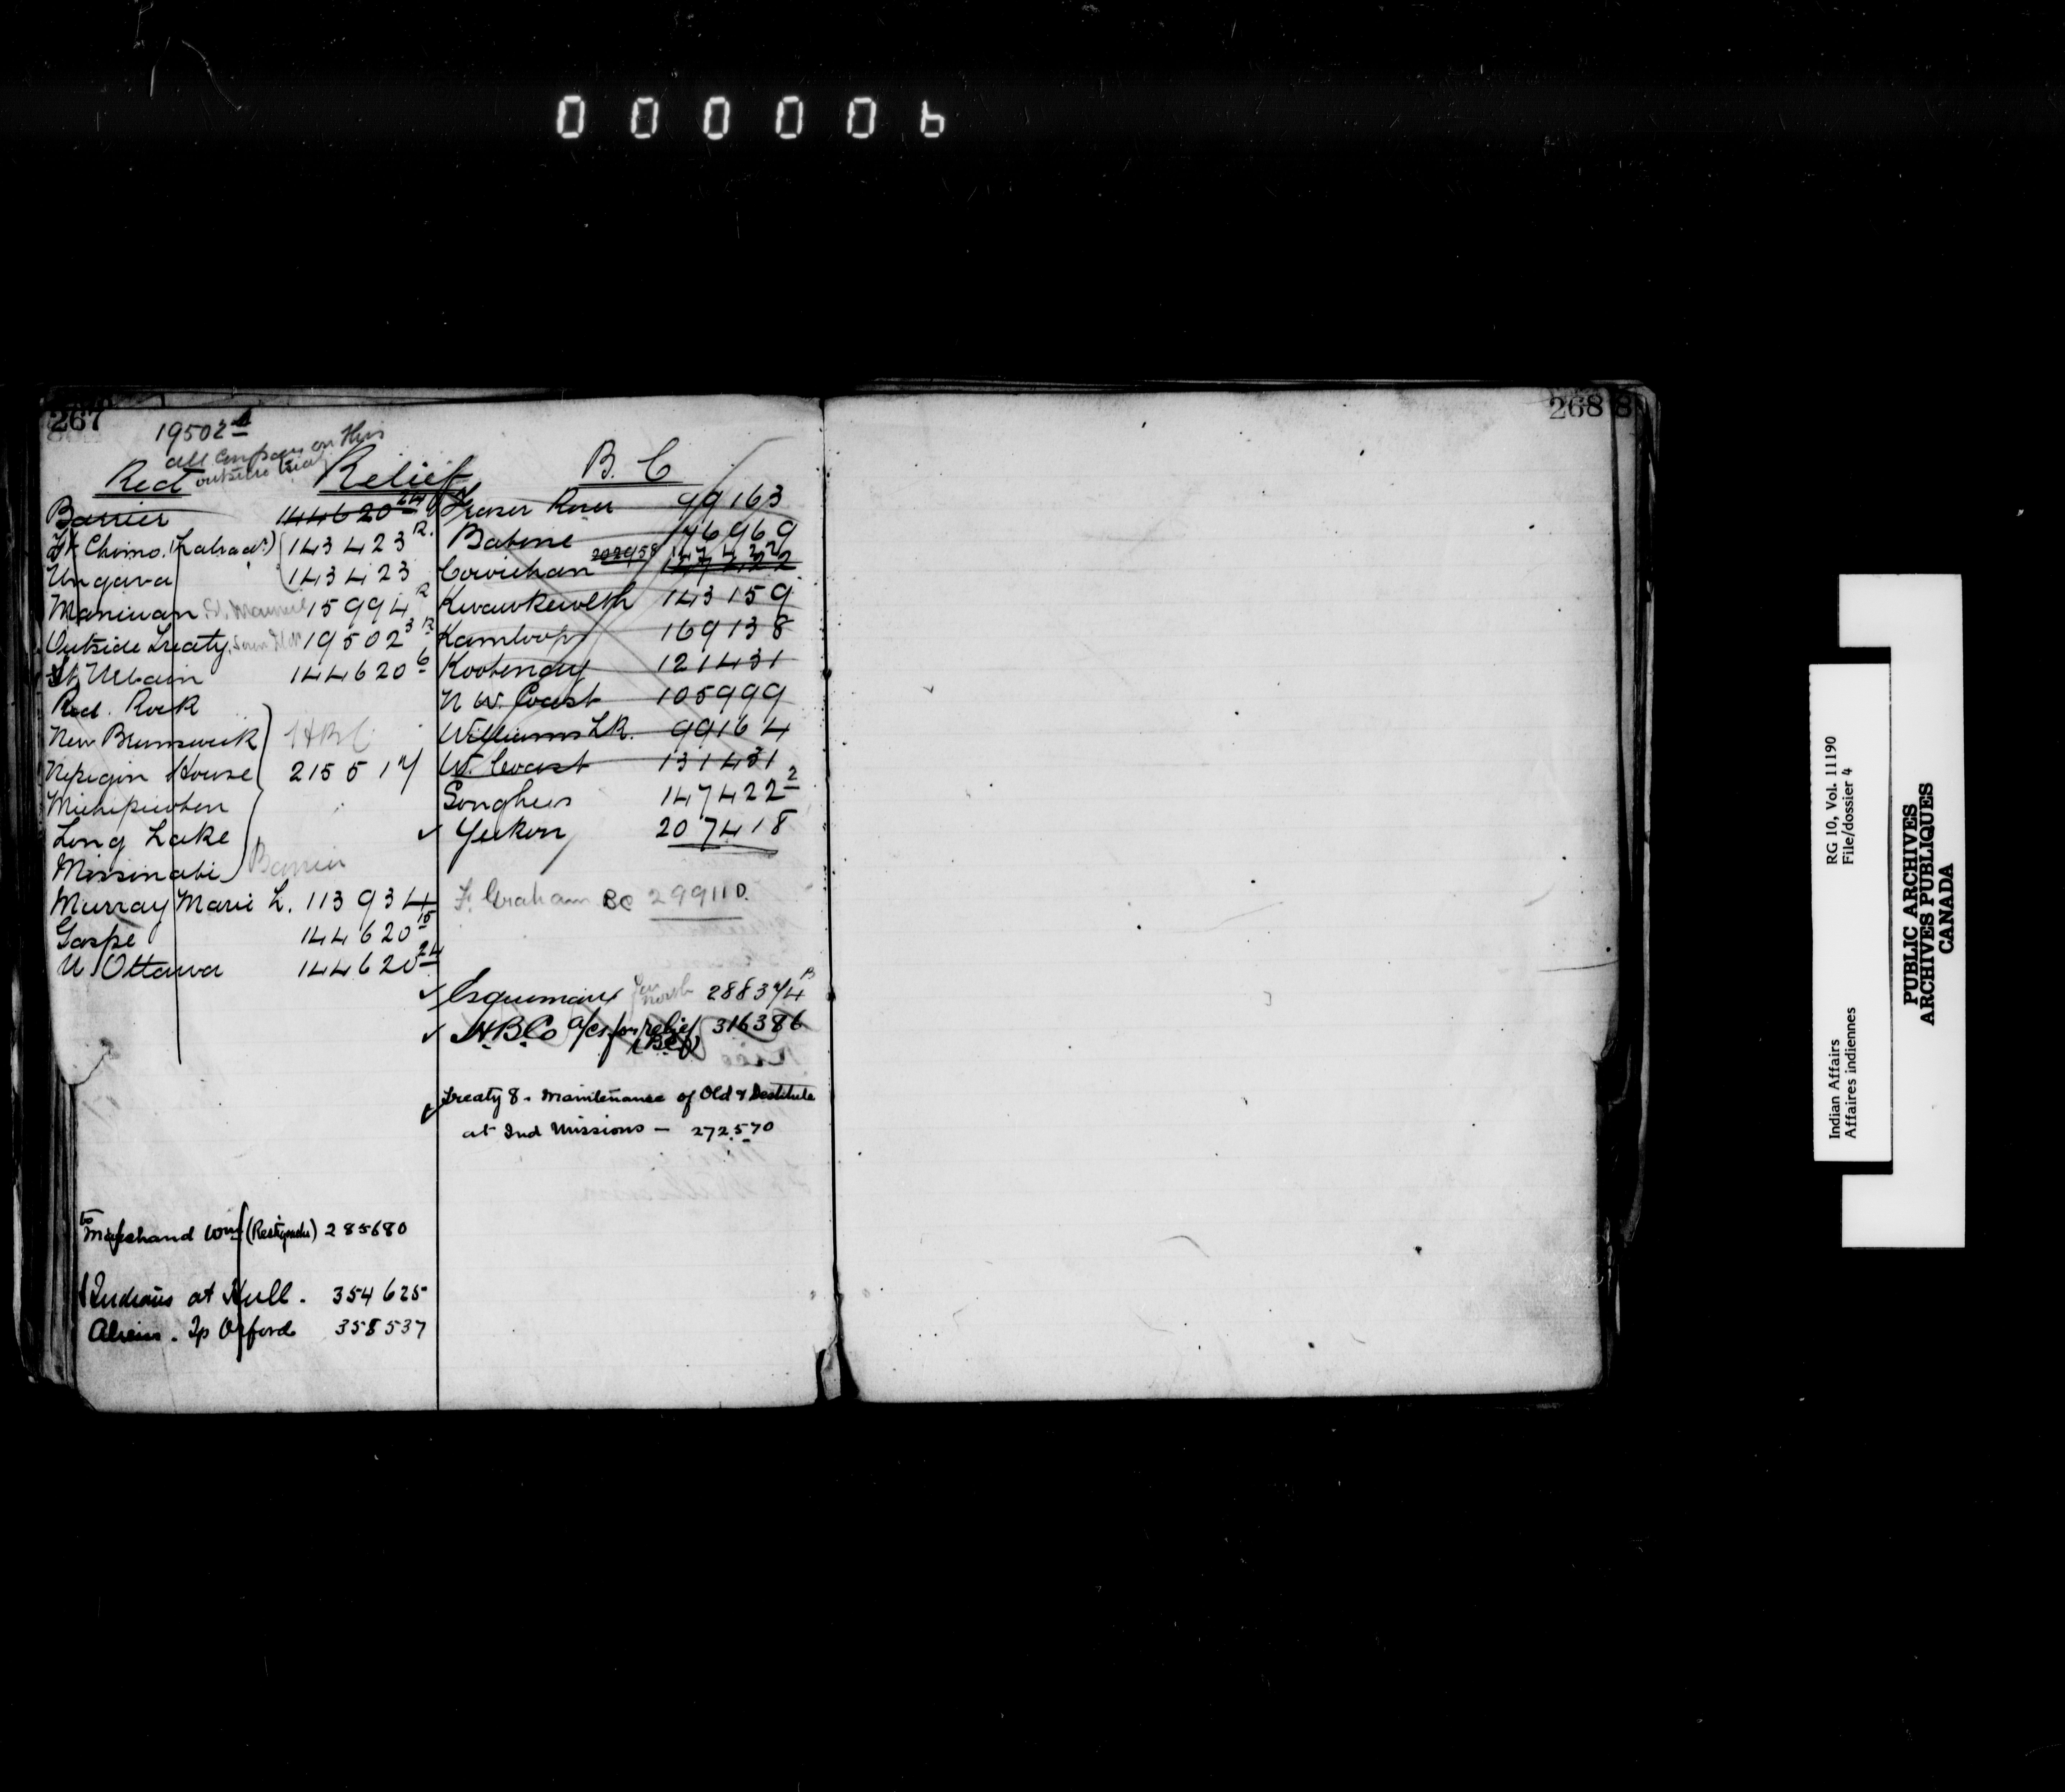 000006
267
268 8
19502
all on this
outside
Red Relief
Barrier 144620
Ft Chimo. 143423 R.
Ungava 143423
Maniwan St. Maurice 15994 R
Outside Treaty 19502 3 R
St Urbain 144620 6
Red. Rock
New Brunswick HBC
Nepigon House 215517
Michipicoten
Long Lake
Missinabi Barrier
Murray Marie L. 113934
Gaspe 144620 15
U. Ottawa 144620 24
to
Marchand Wm (Restigouche) 285680
Indians at Hull. 354625
Tp Orford 358537
B. C
Fraser River 99163
Babine 96969
Cowichan 202958 147422
Kwawkewlth 143159
Kamloops 169138
Kootenay 121431
N W. Coast 105999
Williams LK. 99164
W. Coast 131431
Songhees 147422 2
✓ Yukon 207418
F. Graham BC 299110.
✓ Esquimaux Far North 288374 B
✓ H.B.Co a/cs for relief 316386
(B.C.)
✓ Treaty 8 - Maintenance of Old & Destitute
at Ind Missions - 272,570
Indian Affairs RG 10, Vol. 11190
Affaires indiennes File/dossier 4
PUBLIC ARCHIVES
ARCHIVES PUBLIQUES
CANADA